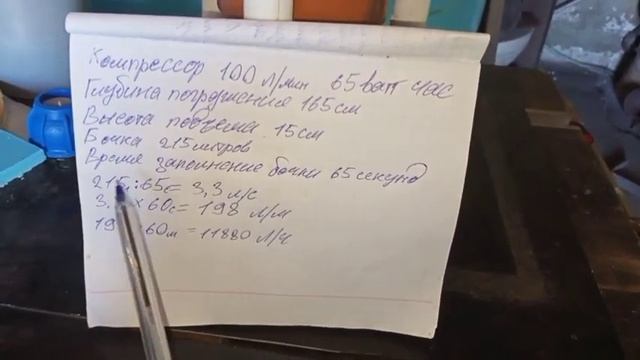 Компрессор 100 л/мин 65 ватт час
Глубина погружения 165 см
Высота подъема 15 см
Бочка 215 литров
Время заполнение бочки 65 секунд
215 : 65с = 3,3 л/с
3. х 60с = 198 л/м
19 60м = 11880 л/ч